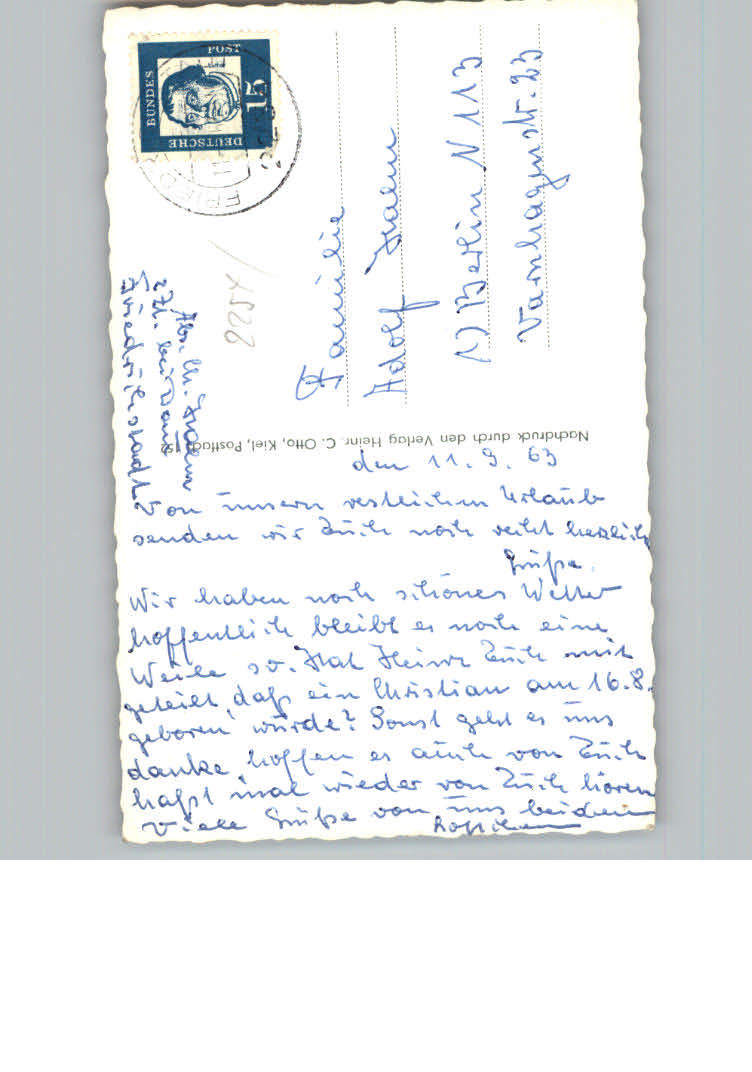 den 11.9.63
Von unsern restlichen Urlaub
senden wir Euch noch recht herzlich
Grüße.
Wir haben noch schönes Wetter
hoffentlich bleibt es noch eine
Weile so. Hat Heinz Euch mit
geteilt, daß ein Christian am 16.8.
geboren wurde? Sonst geht es uns
danke, hoffen es auch von Euch
laßt mal wieder von Euch hören
Viele Grüße von uns beiden
Familie
Adolf
1) Berlin N 113
Varnhagenstr. 23
Abs.
z. Zt. bei
Friedrichstadt
2257
DEUTSCHE
BUNDES
POST
15
FRIED
Nachdruck durch den Verlag Heinr. C. Otto, Kiel, Postfach